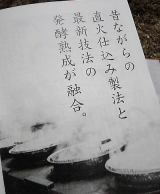 昔ながらの
直火仕込み製法と
最新技法の
発酵熟成が融合。